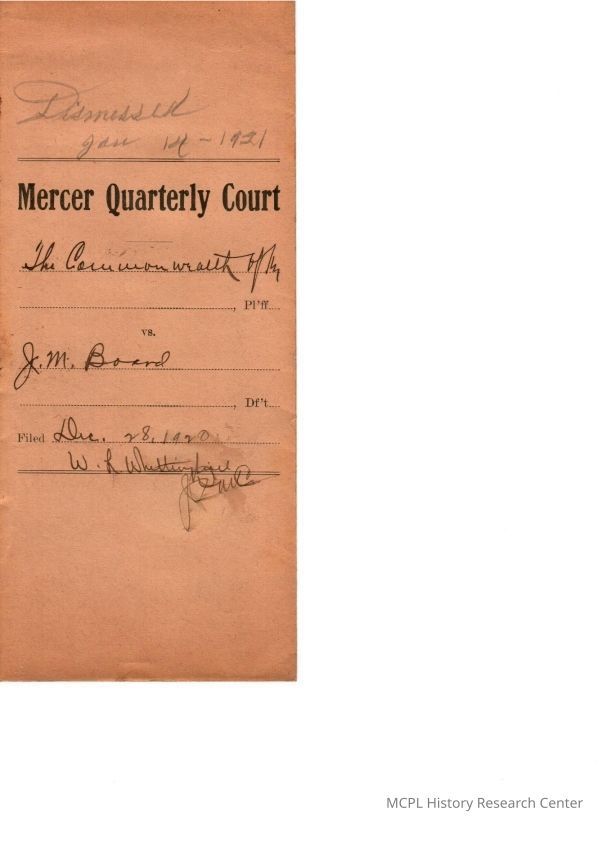 Dismissed
Jan 14 - 1921
Mercer Quarterly Court
The Commonwealth of Ky
, Pl'ff.
vs.
J. M. Board
, Df't.
Filed Dec. 28, 1920
W. L. Whittinghill
MCPL History Research Center